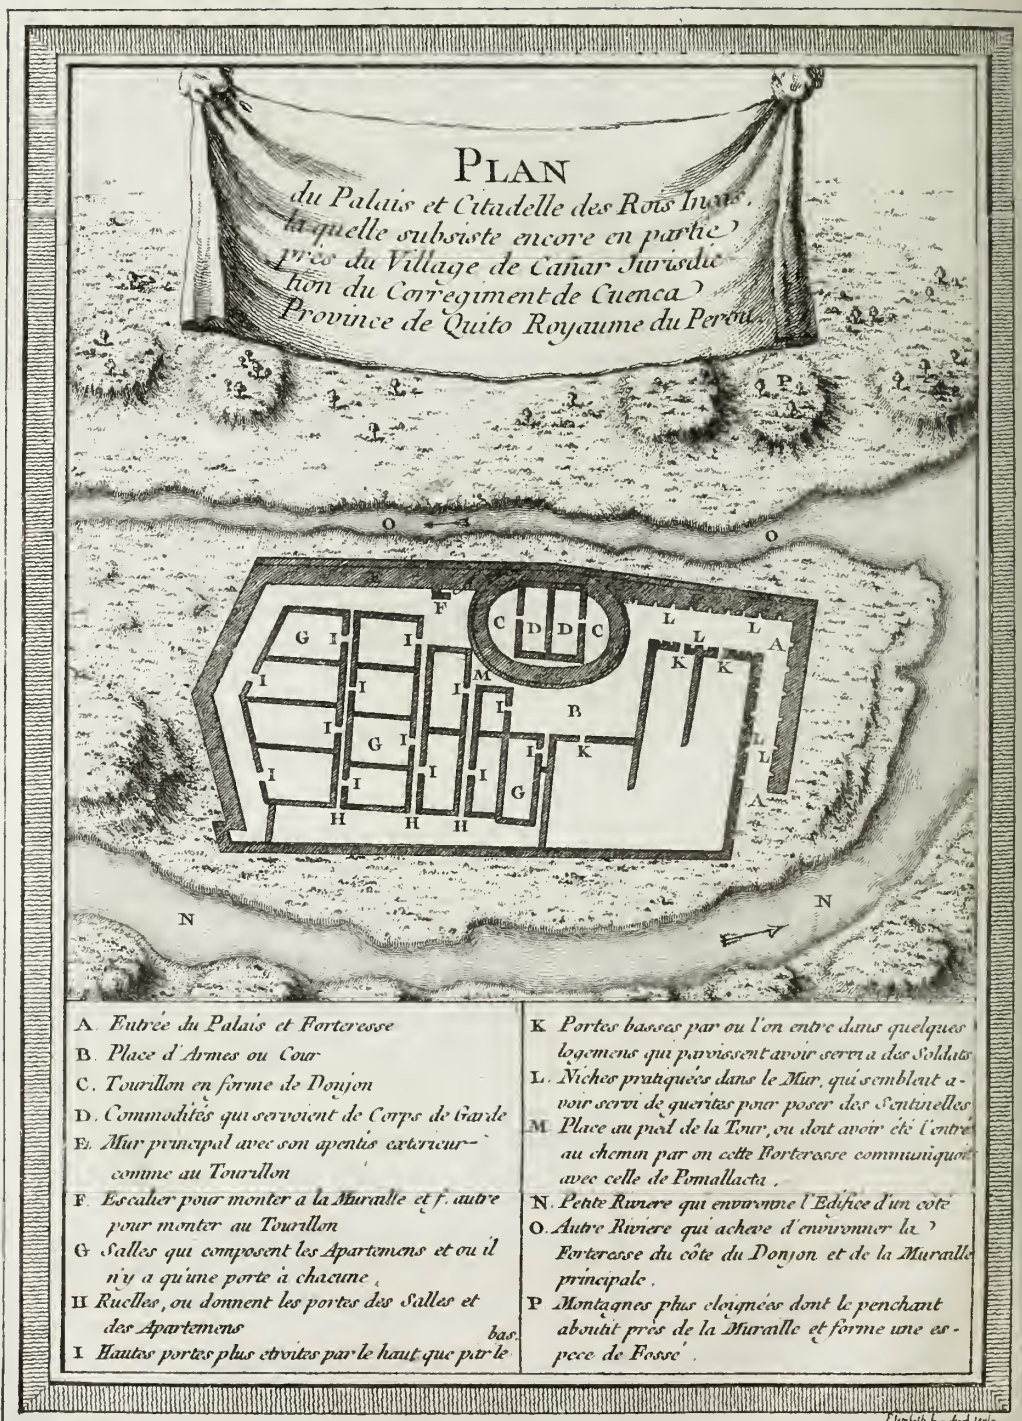 PLAN
du Palais et Citadelle des Rois Incas,
la quelle subsiste encore en partie
prés du Village de Cañar Jurisdic
tion du Corregiment de Cuenca
Province de Quito Royaume du Perou.
P
O
O
E
f
F
C
D
D
C
L
L
L
A
K
K
G
I
I
M
I
I
I
I
B
I
L
I
G
I
I
K
L
I
I
I
I
I
G
A
H
H
H
N
N
A. Entrée du Palais et Forteresse
B. Place d'Armes ou Cour
C. Tourillon en forme de Donjon
D. Commodités qui servoient de Corps de Garde
E. Mur principal avec son apentis exterieur
comme au Tourillon
F Escalier pour monter a la Muraille et f. autre
pour monter au Tourillon
G Salles qui composent les Apartemens et ou il
n'y a qu'une porte à chacune,
H Ruelles, ou donnent les portes des Salles et
des Apartemens
bas.
I Hautes portes plus etroites par le haut que par le
K Portes basses par ou l'on entre dans quelques
logemens qui paroissent avoir servi a des Soldats
L. Niches pratiquées dans le Mur, qui semblent a-
voir servi de guerites pour poser des Sentinelles
M Place au pied de la Tour, ou doit avoir été l'entré
au chemin par on cette Forteresse communiquoit
avec celle de Pomallacta.
N. Petite Riviere qui environne l'Edifice d'un côté
O. Autre Riviere qui acheve d'environner la
Forteresse du côte du Donjon et de la Muraille
principale.
P Montagnes plus eloignées dont le penchant
aboutit prés de la Muraille et forme une es-
pece de Fossé.